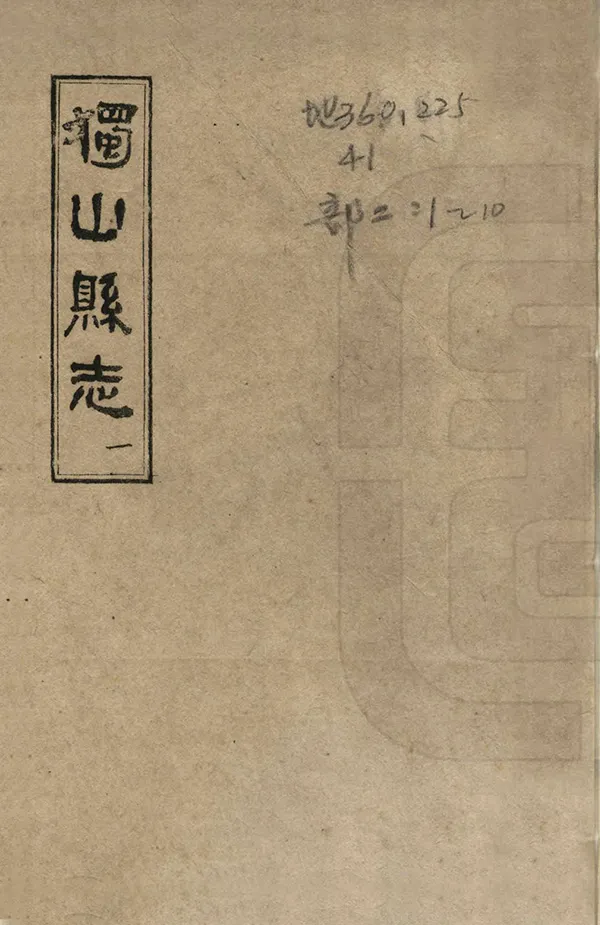 獨山縣志
一
地360.225
41
部二:1~10